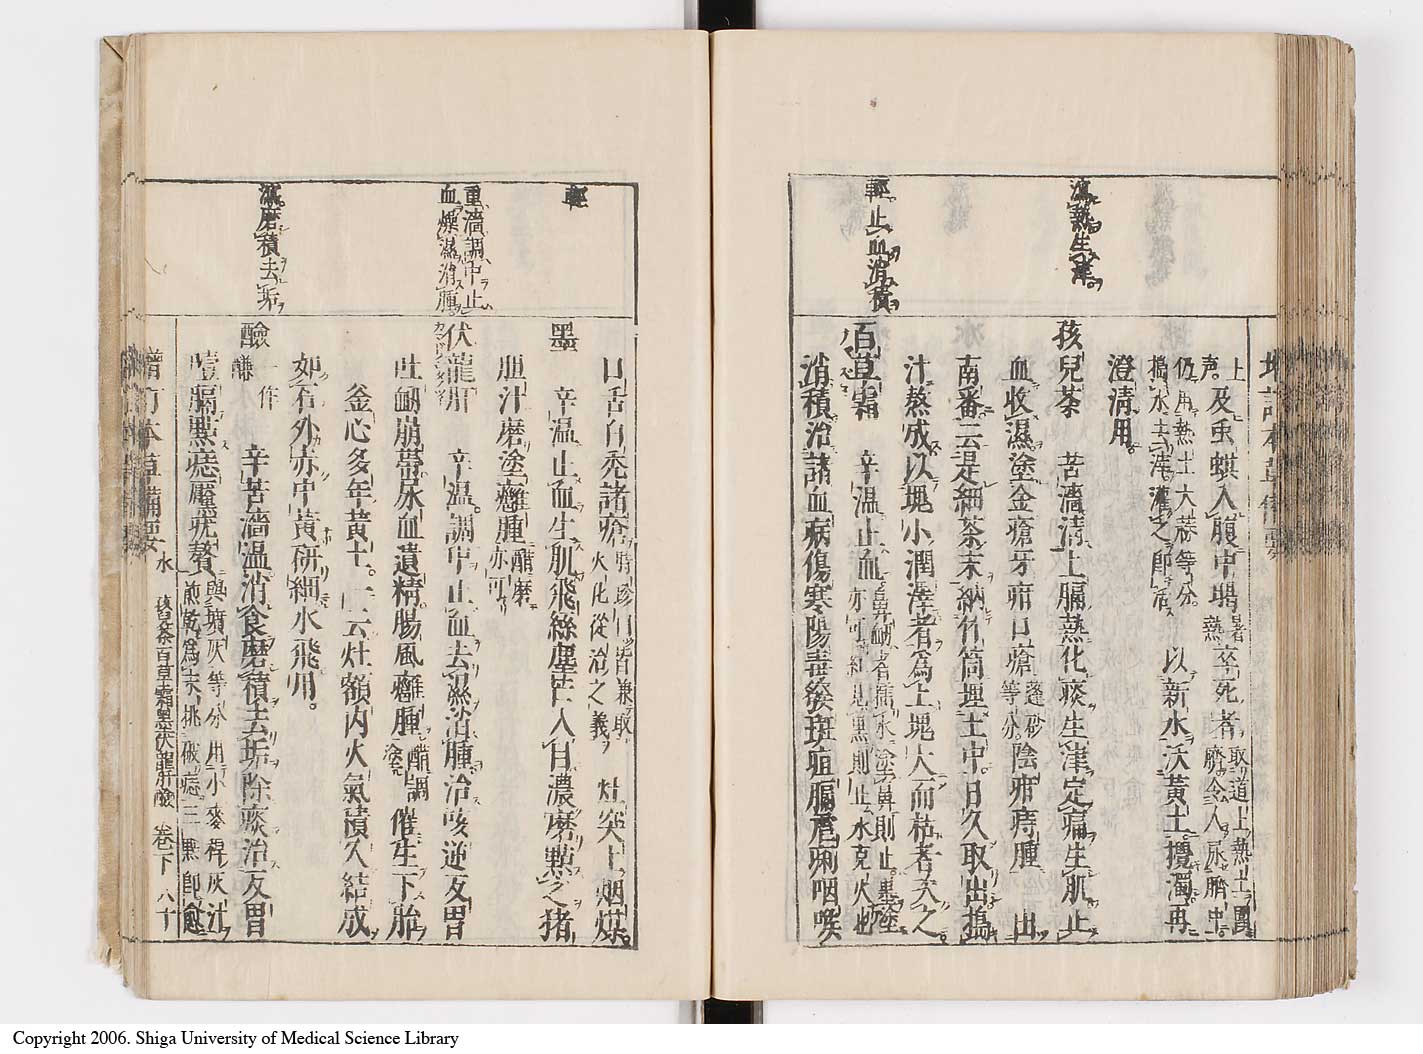 瀉熱生津
輕止血消積
上
声及虫蟻入腹中暍暑熱卒死者取道上熱土圍臍令人尿臍中
仍用熱土大蒜等分搗水去滓灌之即活 以新水沃黃土攪濁再
澄清用
孩兒茶 苦濇清上膈熱化痰生津定痛生肌止
血收濕塗金瘡牙疳口瘡蓬砂等分陰疳痔腫 出
南番云是細茶末納竹筒埋土中日久取出搗
汁熬成以塊小潤澤者為上塊大而枯者次之
百草霜 辛溫止血鼻衂者猫水塗鼻則止。
消積治諸血病傷寒陽毒發斑疽膈瘧痢咽喉
輕
重濇調中止
血燥濕消腫
瀉磨積去垢
口舌白禿諸瘡時珍曰皆兼取火化從治之義 灶突上烟煤。
墨 辛溫止血生肌飛絲塵芒入目濃磨點之猪
胆汁磨塗癰腫醋磨亦可
伏龍肝 辛溫。調中止血去濕消腫治咳逆反胃
吐衂崩帶尿血遺精腸風癰腫醋調塗催生下胎
釜心多年黃土。一云灶額內火氣積久結成
如石外赤中黃研細水飛用。
鹼一作鹻 辛苦濇溫消食磨積去垢除痰治反胃
噎膈點痣黶疣贅與壙灰等分用小麥稈灰汁煎乾為末挑破痣三點即愈
增訂本草備要 水 孩茶百草霜墨伏龍肝鹼 卷下 八十